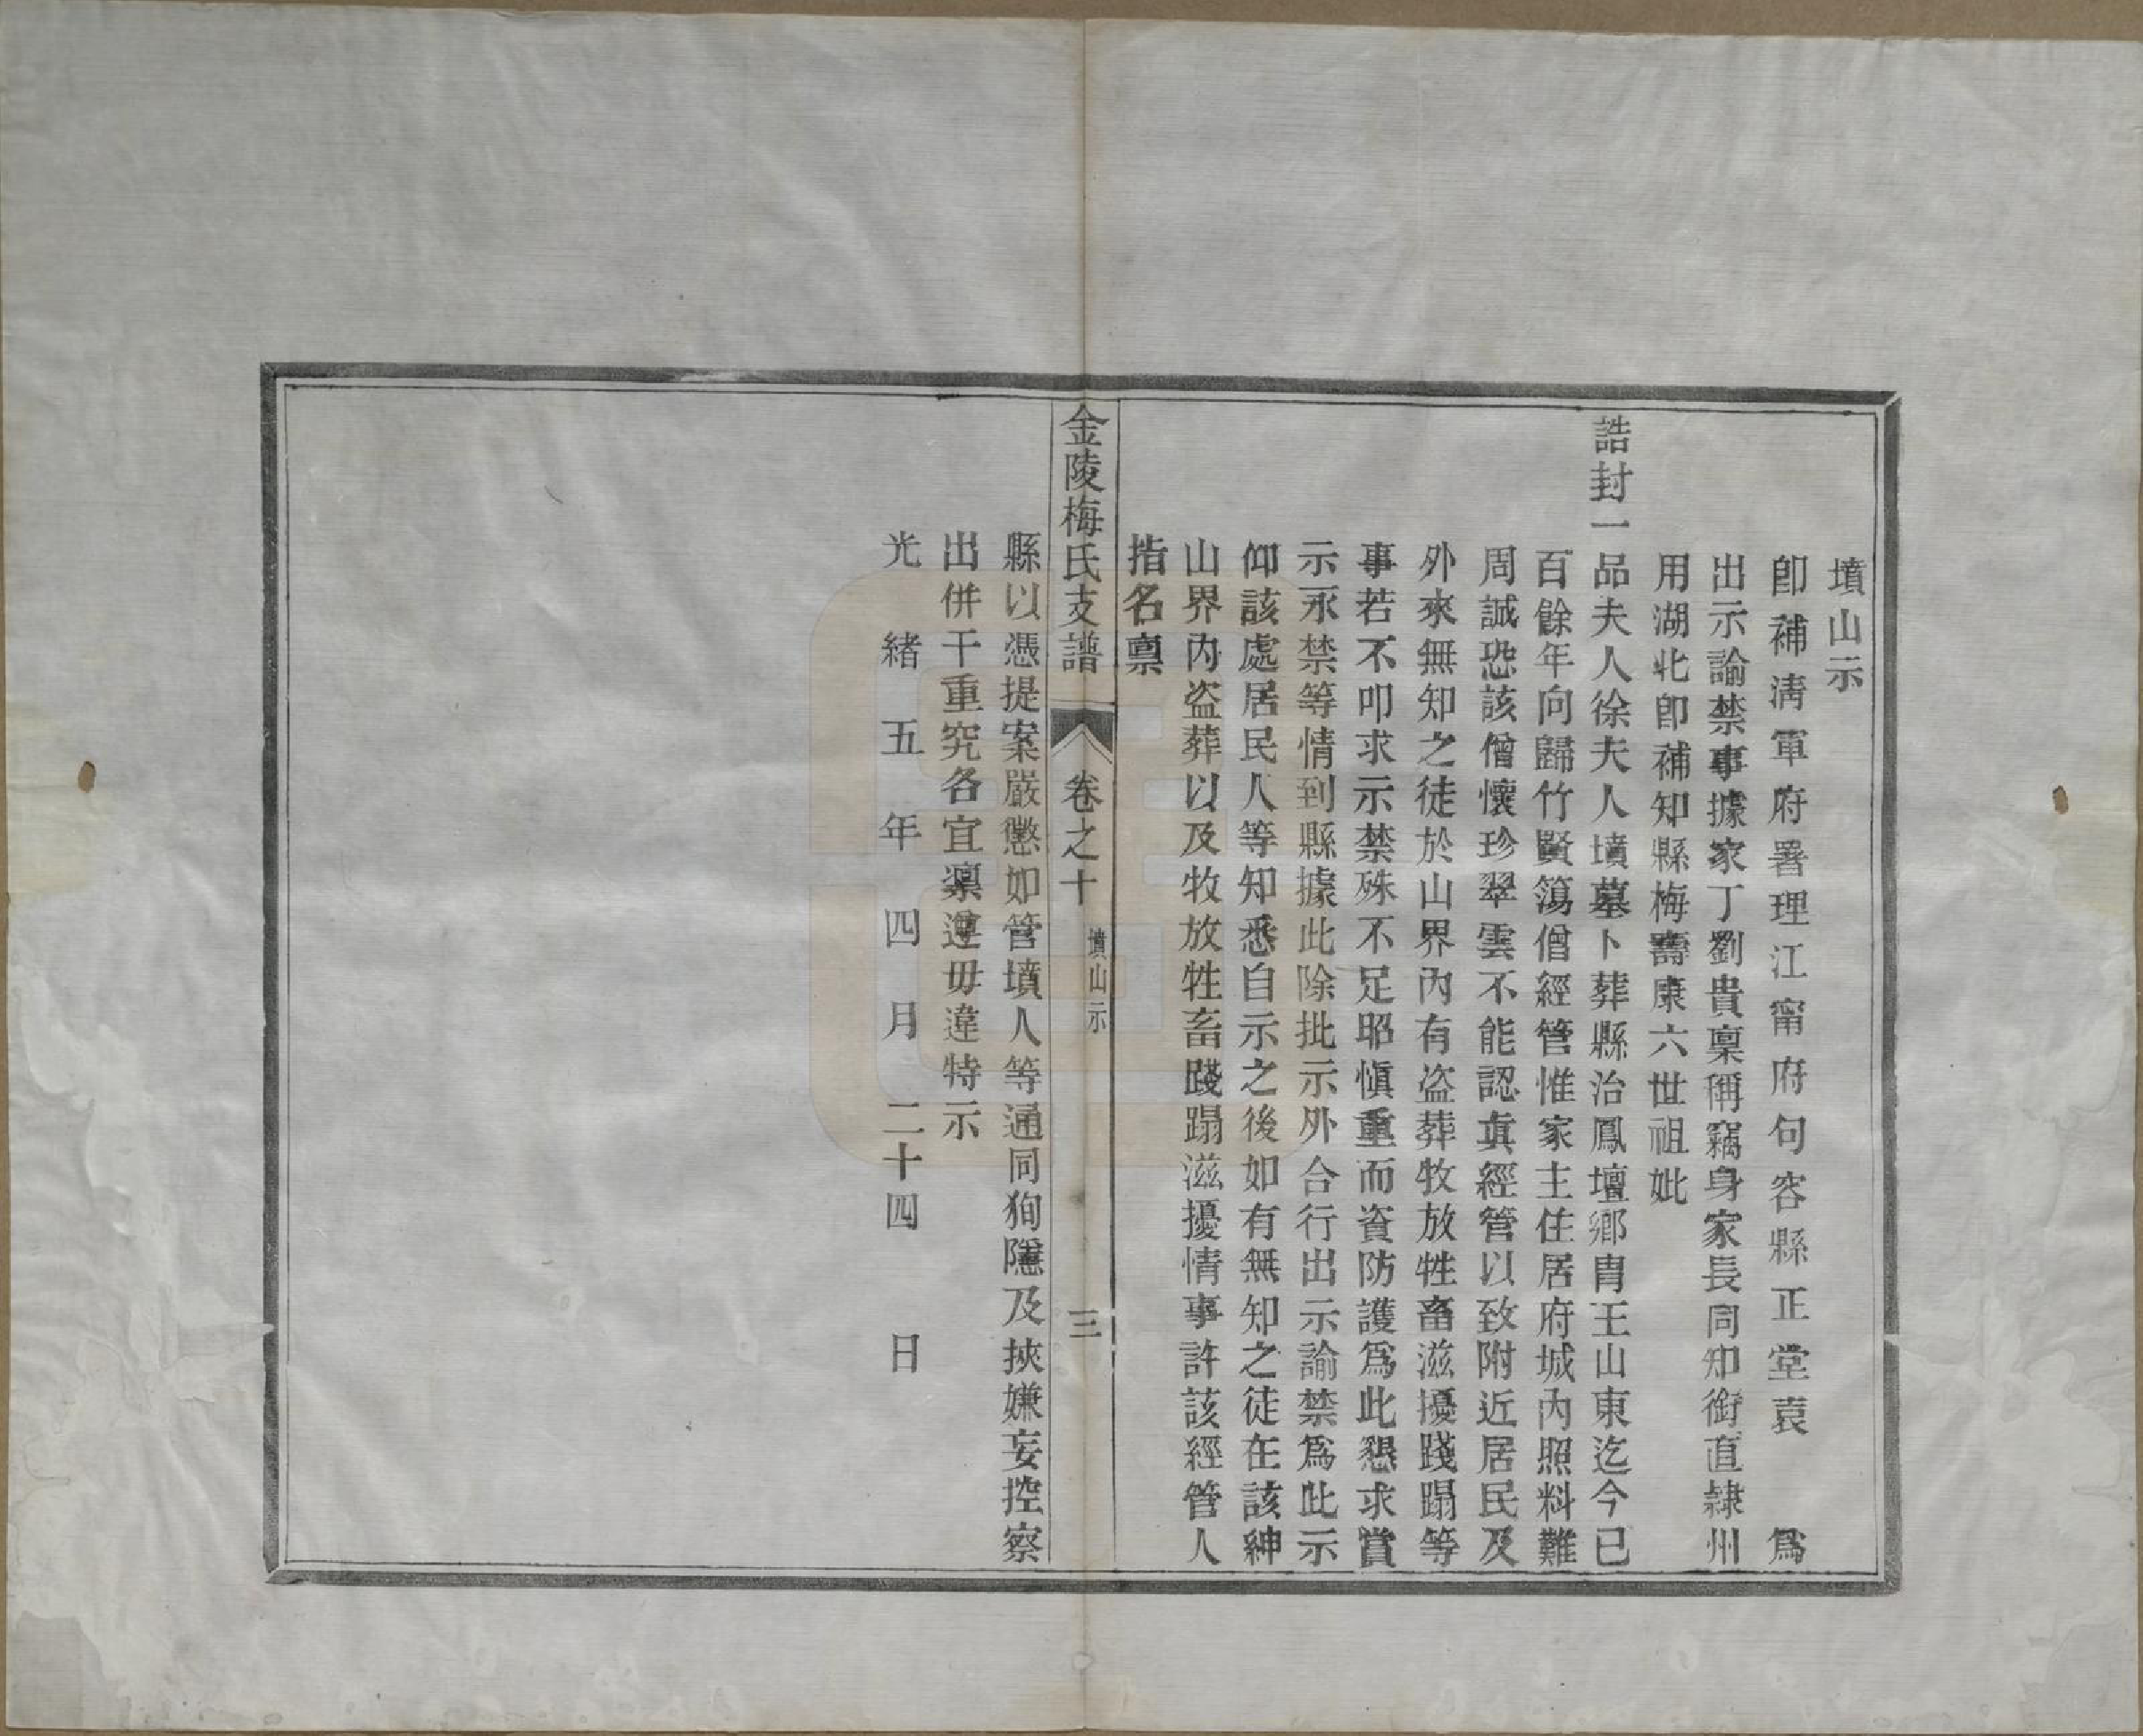 墳山示
卽補淸軍府署理江甯府句容縣正堂袁　爲
出示諭禁事據家丁劉貴稟稱竊身家長同知銜直隸州
用湖北卽補知縣梅壽康六世祖妣
誥封一品夫人徐夫人墳墓卜葬縣治鳳壇鄉胄王山東迄今已
百餘年向歸竹賢蕩僧經管惟家主住居府城內照料難
周誠恐該僧懷珍翠雲不能認眞經管以致附近居民及
外來無知之徒於山界內有盜葬牧放牲畜滋擾踐蹋等
事若不叩求示禁殊不足昭愼重而資防護爲此懇求賞
示永禁等情到縣據此除批示外合行出示諭禁爲此示
仰該處居民人等知悉自示之後如有無知之徒在該紳
山界內盜葬以及牧放牲畜踐蹋滋擾情事許該經管人
指名稟
金陵梅氏支譜　卷之十　墳山示　三
縣以憑提案嚴懲如管墳人等通同狥隱及挾嫌妄控察
出併干重究各宜凜遵毋違特示
光緒五年四月二十四日